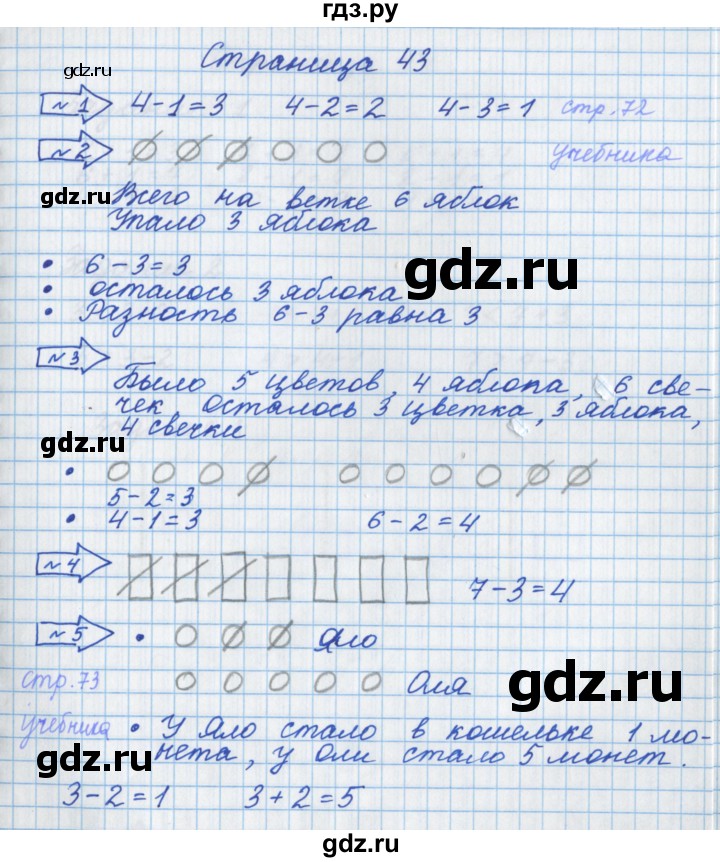 гдз.ру
Страница 43
gdz.ru
№ 1 4-1=3 4-2=2 4-3=1 стр. 72
№ 2 учебника
gdz.ru
Всего на ветке 6 яблок
Упало 3 яблока
gdz.ru
• 6-3=3
• осталось 3 яблока
• Разность 6-3 равна 3
№ 3
Было 5 цветов, 4 яблока, 6 све-
чек осталось 3 цветка, 3 яблока,
4 свечки
gdz.ru
•
5-2=3
• 4-1=3 6-2=4
gdz.ru
№ 4 7-3=4
№ 5 • Яло
gdz.ru
стр. 73 Оля
учебника • У Яло стало в кошельке 1 мо-
нета, у Оли стало 5 монет.
gdz.ru
3-2=1 3+2=5
gdz.ru
gdz.ru